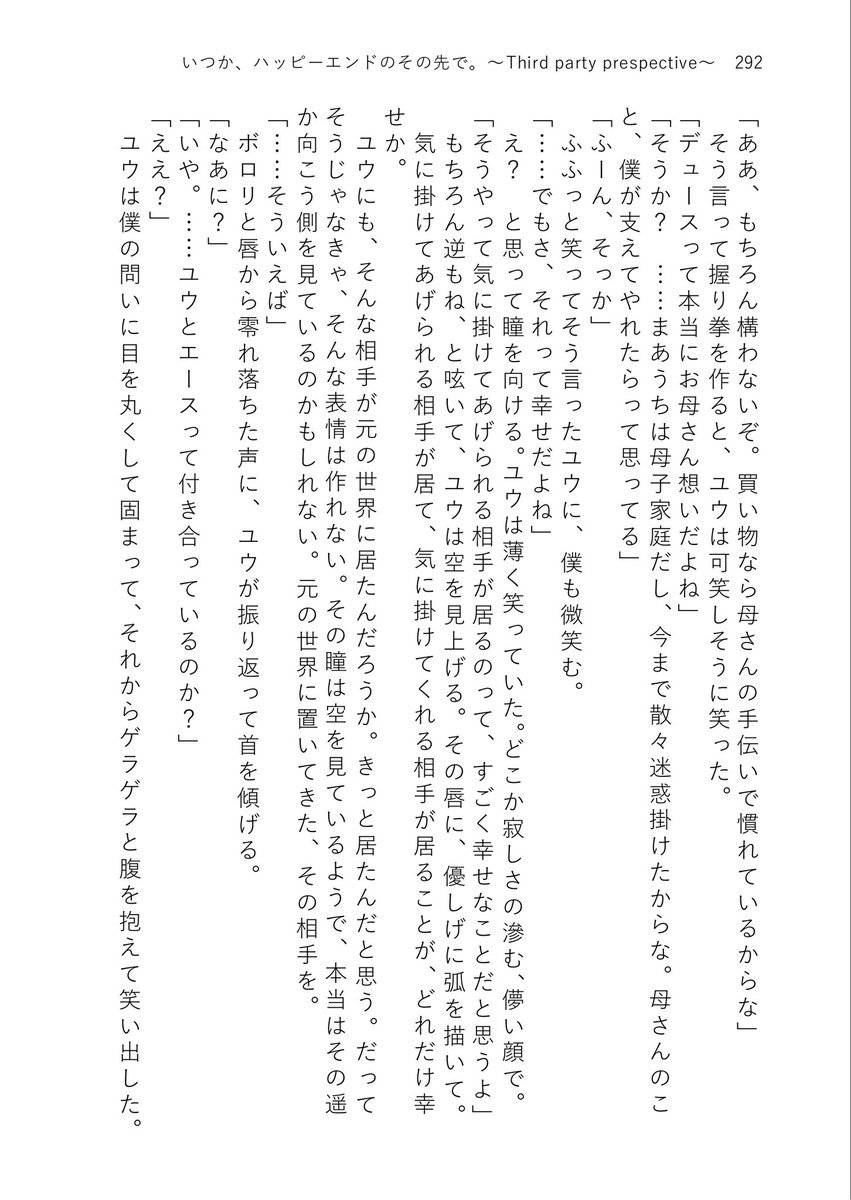 いつか、ハッピーエンドのその先で。～Third party prespective～ 292
「ああ、もちろん構わないぞ。買い物なら母さんの手伝いで慣れているからな」
そう言って握り拳を作ると、ユウは可笑しそうに笑った。
「デュースって本当にお母さん想いだよね」
「そうか？　……まあうちは母子家庭だし、今まで散々迷惑掛けたからな。母さんのこ
と、僕が支えてやれたらって思ってる」
「ふーん、そっか」
ふふっと笑ってそう言ったユウに、僕も微笑む。
「……でもさ、それって幸せだよね」
え？　と思って瞳を向ける。ユウは薄く笑っていた。どこか寂しさの滲む、儚い顔で。
「そうやって気に掛けてあげられる相手が居るのって、すごく幸せなことだと思うよ」
もちろん逆もね、と呟いて、ユウは空を見上げる。その唇に、優しげに弧を描いて。
気に掛けてあげられる相手が居て、気に掛けてくれる相手が居ることが、どれだけ幸
せか。
ユウにも、そんな相手が元の世界に居たんだろうか。きっと居たんだと思う。だって
そうじゃなきゃ、そんな表情は作れない。その瞳は空を見ているようで、本当はその遥
か向こう側を見ているのかもしれない。元の世界に置いてきた、その相手を。
「……そういえば」
ボロリと唇から零れ落ちた声に、ユウが振り返って首を傾げる。
「なあに？」
「いや。……ユウとエースって付き合っているのか？」
「ええ？」
ユウは僕の問いに目を丸くして固まって、それからゲラゲラと腹を抱えて笑い出した。